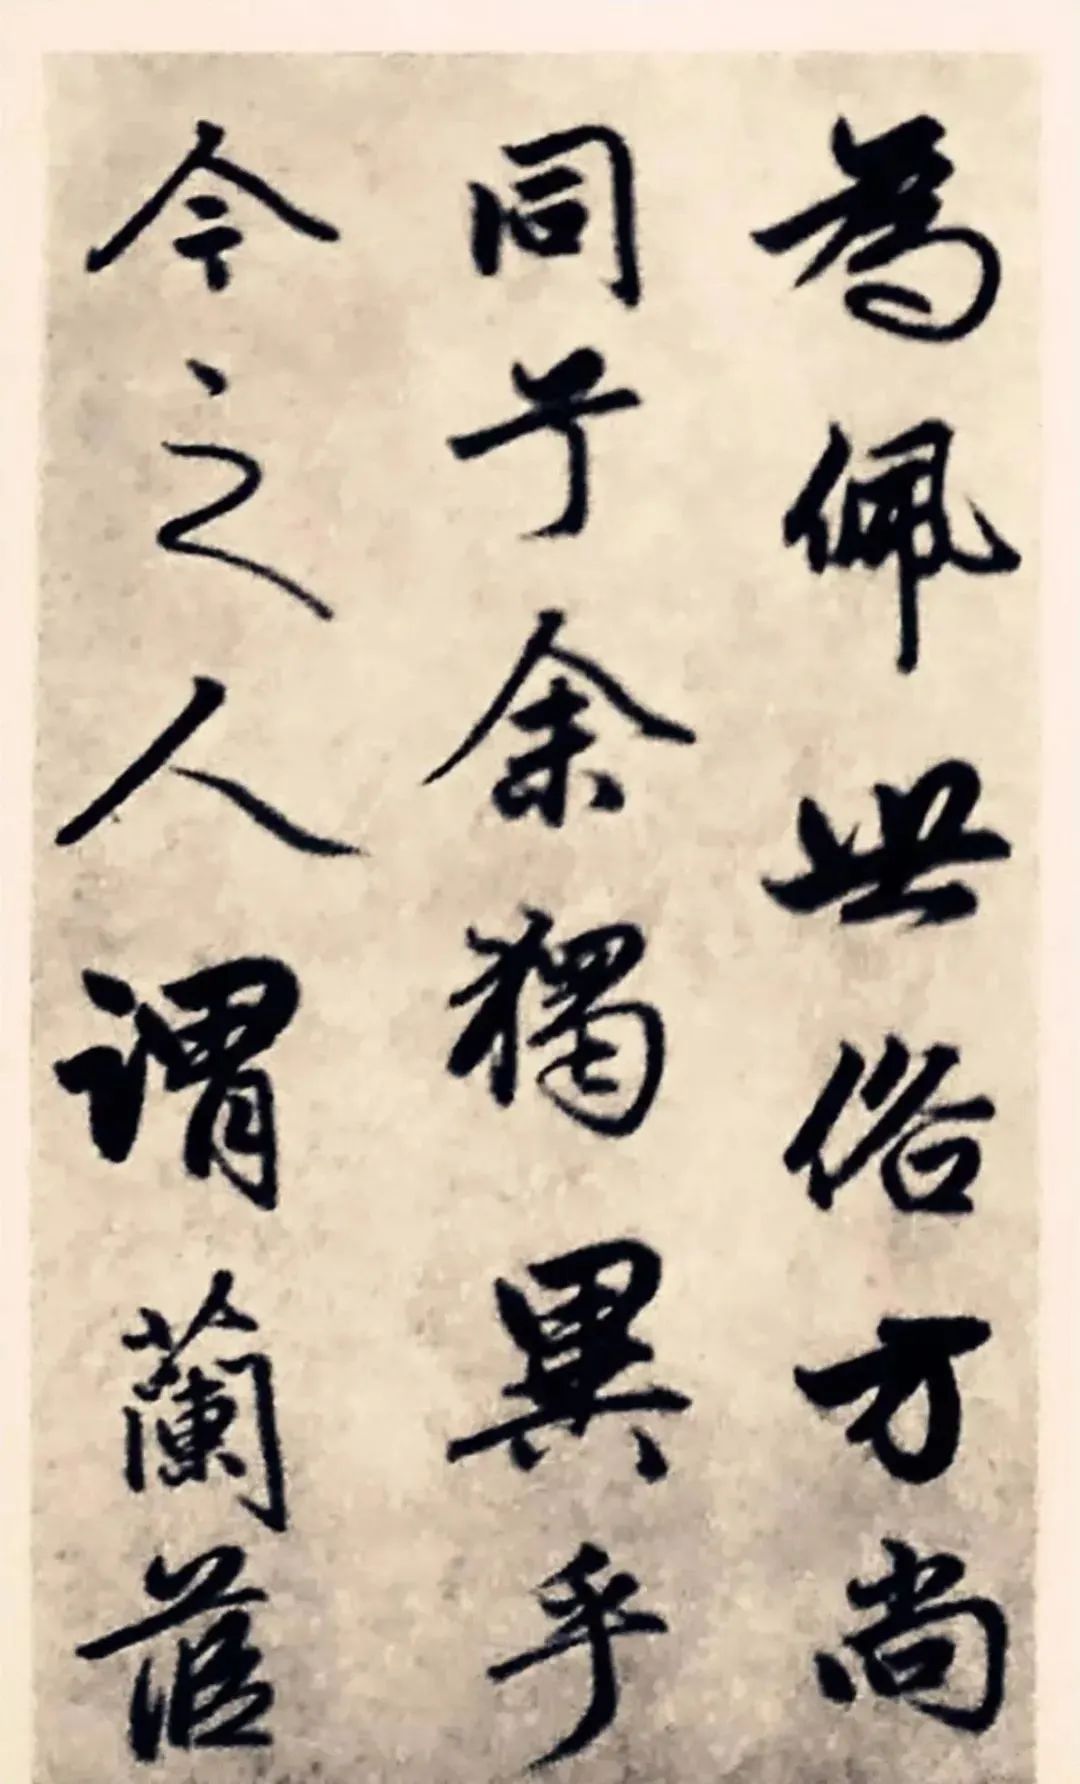 為佩世俗方尚
同兮余獨異乎
今之人謂蘭茝